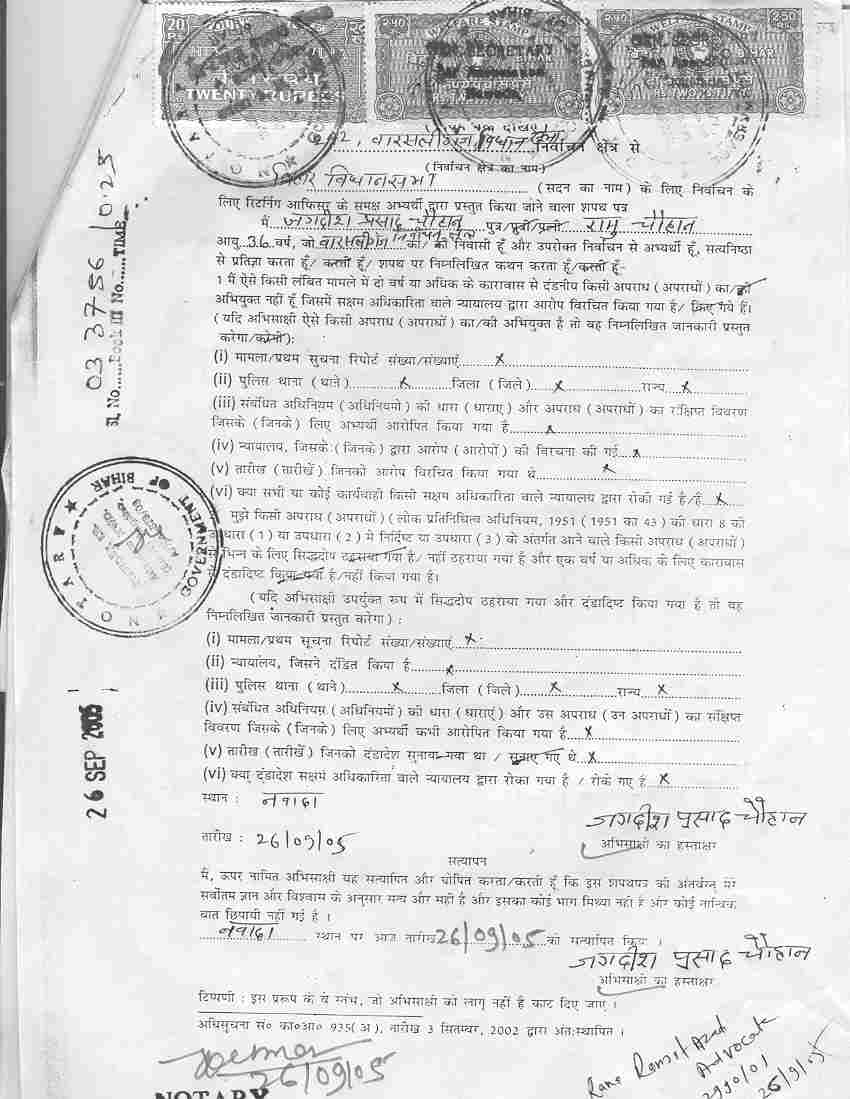 20
RS
TWENTY RUPEES
WELFARE STAMP
BIHAR
WELFARE STAMP
BIHAR
वारसलीगंज विधान सभा निर्वाचन क्षेत्र से
(निर्वाचन क्षेत्र का नाम)
बिहार विधानसभा (सदन का नाम) के लिए निर्वाचन के
लिए रिटर्निंग आफिसर के समक्ष अभ्यर्थी द्वारा प्रस्तुत किया जोने वाला शपथ पत्र
मैं जगदीश प्रसाद चौहान पुत्र/पुत्री/पत्नी रामु चौहान
आयु 36 वर्ष, जो वारसलीगंज का/की निवासी हूँ और उपरोक्त निर्वाचन से अभ्यर्थी हूँ, सत्यनिष्ठा
से प्रतिज्ञा करता हूँ/ करती हूँ/ शपथ पर निम्नलिखित कथन करता हूँ/करती हूँ-
1 मैं ऐसे किसी लंबित मामले में दो वर्ष या अधिक के कारावास से दंडनीय किसी अपराध (अपराधों) का/की
अभियुक्त नहीं हूँ जिसमें सक्षम अधिकारिता वाले न्यायालय द्वारा आरोप विरचित किया गया है/ किए गये हैं।
(यदि अभिसाक्षी ऐसे किसी अपराध (अपराधों) का/की अभियुक्त है तो वह निम्नलिखित जानकारी प्रस्तुत
करेगा/करेगी):
(i) मामला/प्रथम सूचना रिपोर्ट संख्या/संख्याएं x
(ii) पुलिस थाना (थाने) x जिला (जिले) x राज्य x
(iii) संबंधित अधिनियम (अधिनियमों) की धारा (धाराए) और अपराध (अपराधों) का संक्षिप्त विवरण
जिसके (जिनके) लिए अभ्यर्थी आरोपित किया गया है x
(iv) न्यायालय, जिसके (जिनके) द्वारा आरोप (आरोपों) की विरचना की गई x
(v) तारीख (तारीखें) जिनको आरोप विरचित किया गया थे x
(vi) क्या सभी या कोई कार्यवाही किसी सक्षम अधिकारिता वाले न्यायालय द्वारा रोकी गई है/है x
मुझे किसी अपराध (अपराधों) (लोक प्रतिनिधित्व अधिनियम, 1951 (1951 का 43) की धारा 8 की
उपधारा (1) या उपधारा (2) में निर्दिष्ट या उपधारा (3) के अंतर्गत आने वाले किसी अपराध (अपराधों)
से भिन्न के लिए सिद्धदोप ठहराया गया है/ नहीं ठहराया गया है और एक वर्ष या अधिक के लिए कारावास
से दंडादिष्ट किया गया है/नहीं किया गया है।
(यदि अभिसाक्षी उपर्युक्त रूप में सिद्धदोप ठहराया गया और दंडादिष्ट किया गया है तो वह
निम्नलिखित जानकारी प्रस्तुत करेगा) :
(i) मामला/प्रथम सूचना रिपोर्ट संख्या/संख्याएं x
(ii) न्यायालय, जिसने दंडित किया है x
(iii) पुलिस थाना (थाने) x जिला (जिले) x राज्य x
(iv) संबंधित अधिनियम (अधिनियमों) की धारा (धाराएं) और उस अपराध (उन अपराधों) का संक्षिप्त
विवरण जिसके (जिनके) लिए अभ्यर्थी कभी आरोपित किया गया है x
(v) तारीख (तारीखें) जिनको दंडादेश सुनाया गया था / सुनाए गए थे x
(vi) क्या दंडादेश सक्षम अधिकारिता वाले न्यायालय द्वारा रोका गया है / रोके गए है x
स्थान : नवादा
जगदीश प्रसाद चौहान
तारीख : 26/09/05
अभिसाक्षी का हस्ताक्षर
सत्यापन
मैं, ऊपर नामित अभिसाक्षी यह सत्यापित और घोषित करता/करती हूँ कि इस शपथपत्र की अंतर्वस्तु मेरे
सर्वोतम ज्ञान और विश्वास के अनुसार सत्य और सही है और इसका कोई भाग मिथ्या नहीं है और कोई तात्विक
बात छिपायी नहीं गई है ।
नवादा स्थान पर आज तारीख 26/09/05 को सत्यापित किया ।
जगदीश प्रसाद चौहान
अभिसाक्षी का हस्ताक्षर
टिप्पणी : इस प्ररूप के वे स्तंभ, जो अभिसाक्षी को लागू नहीं है काट दिए जाए ।
अधिसूचना सं० का०आ० 935(अ), तारीख 3 सितम्बर, 2002 द्वारा अंतःस्थापित ।
26/09/05
NOTARY
Advocate
26/9/05
Sl. No. 03 3756 Book III No. TIME 10:25
NOTARY GOVERNMENT OF BIHAR
26 SEP 2005